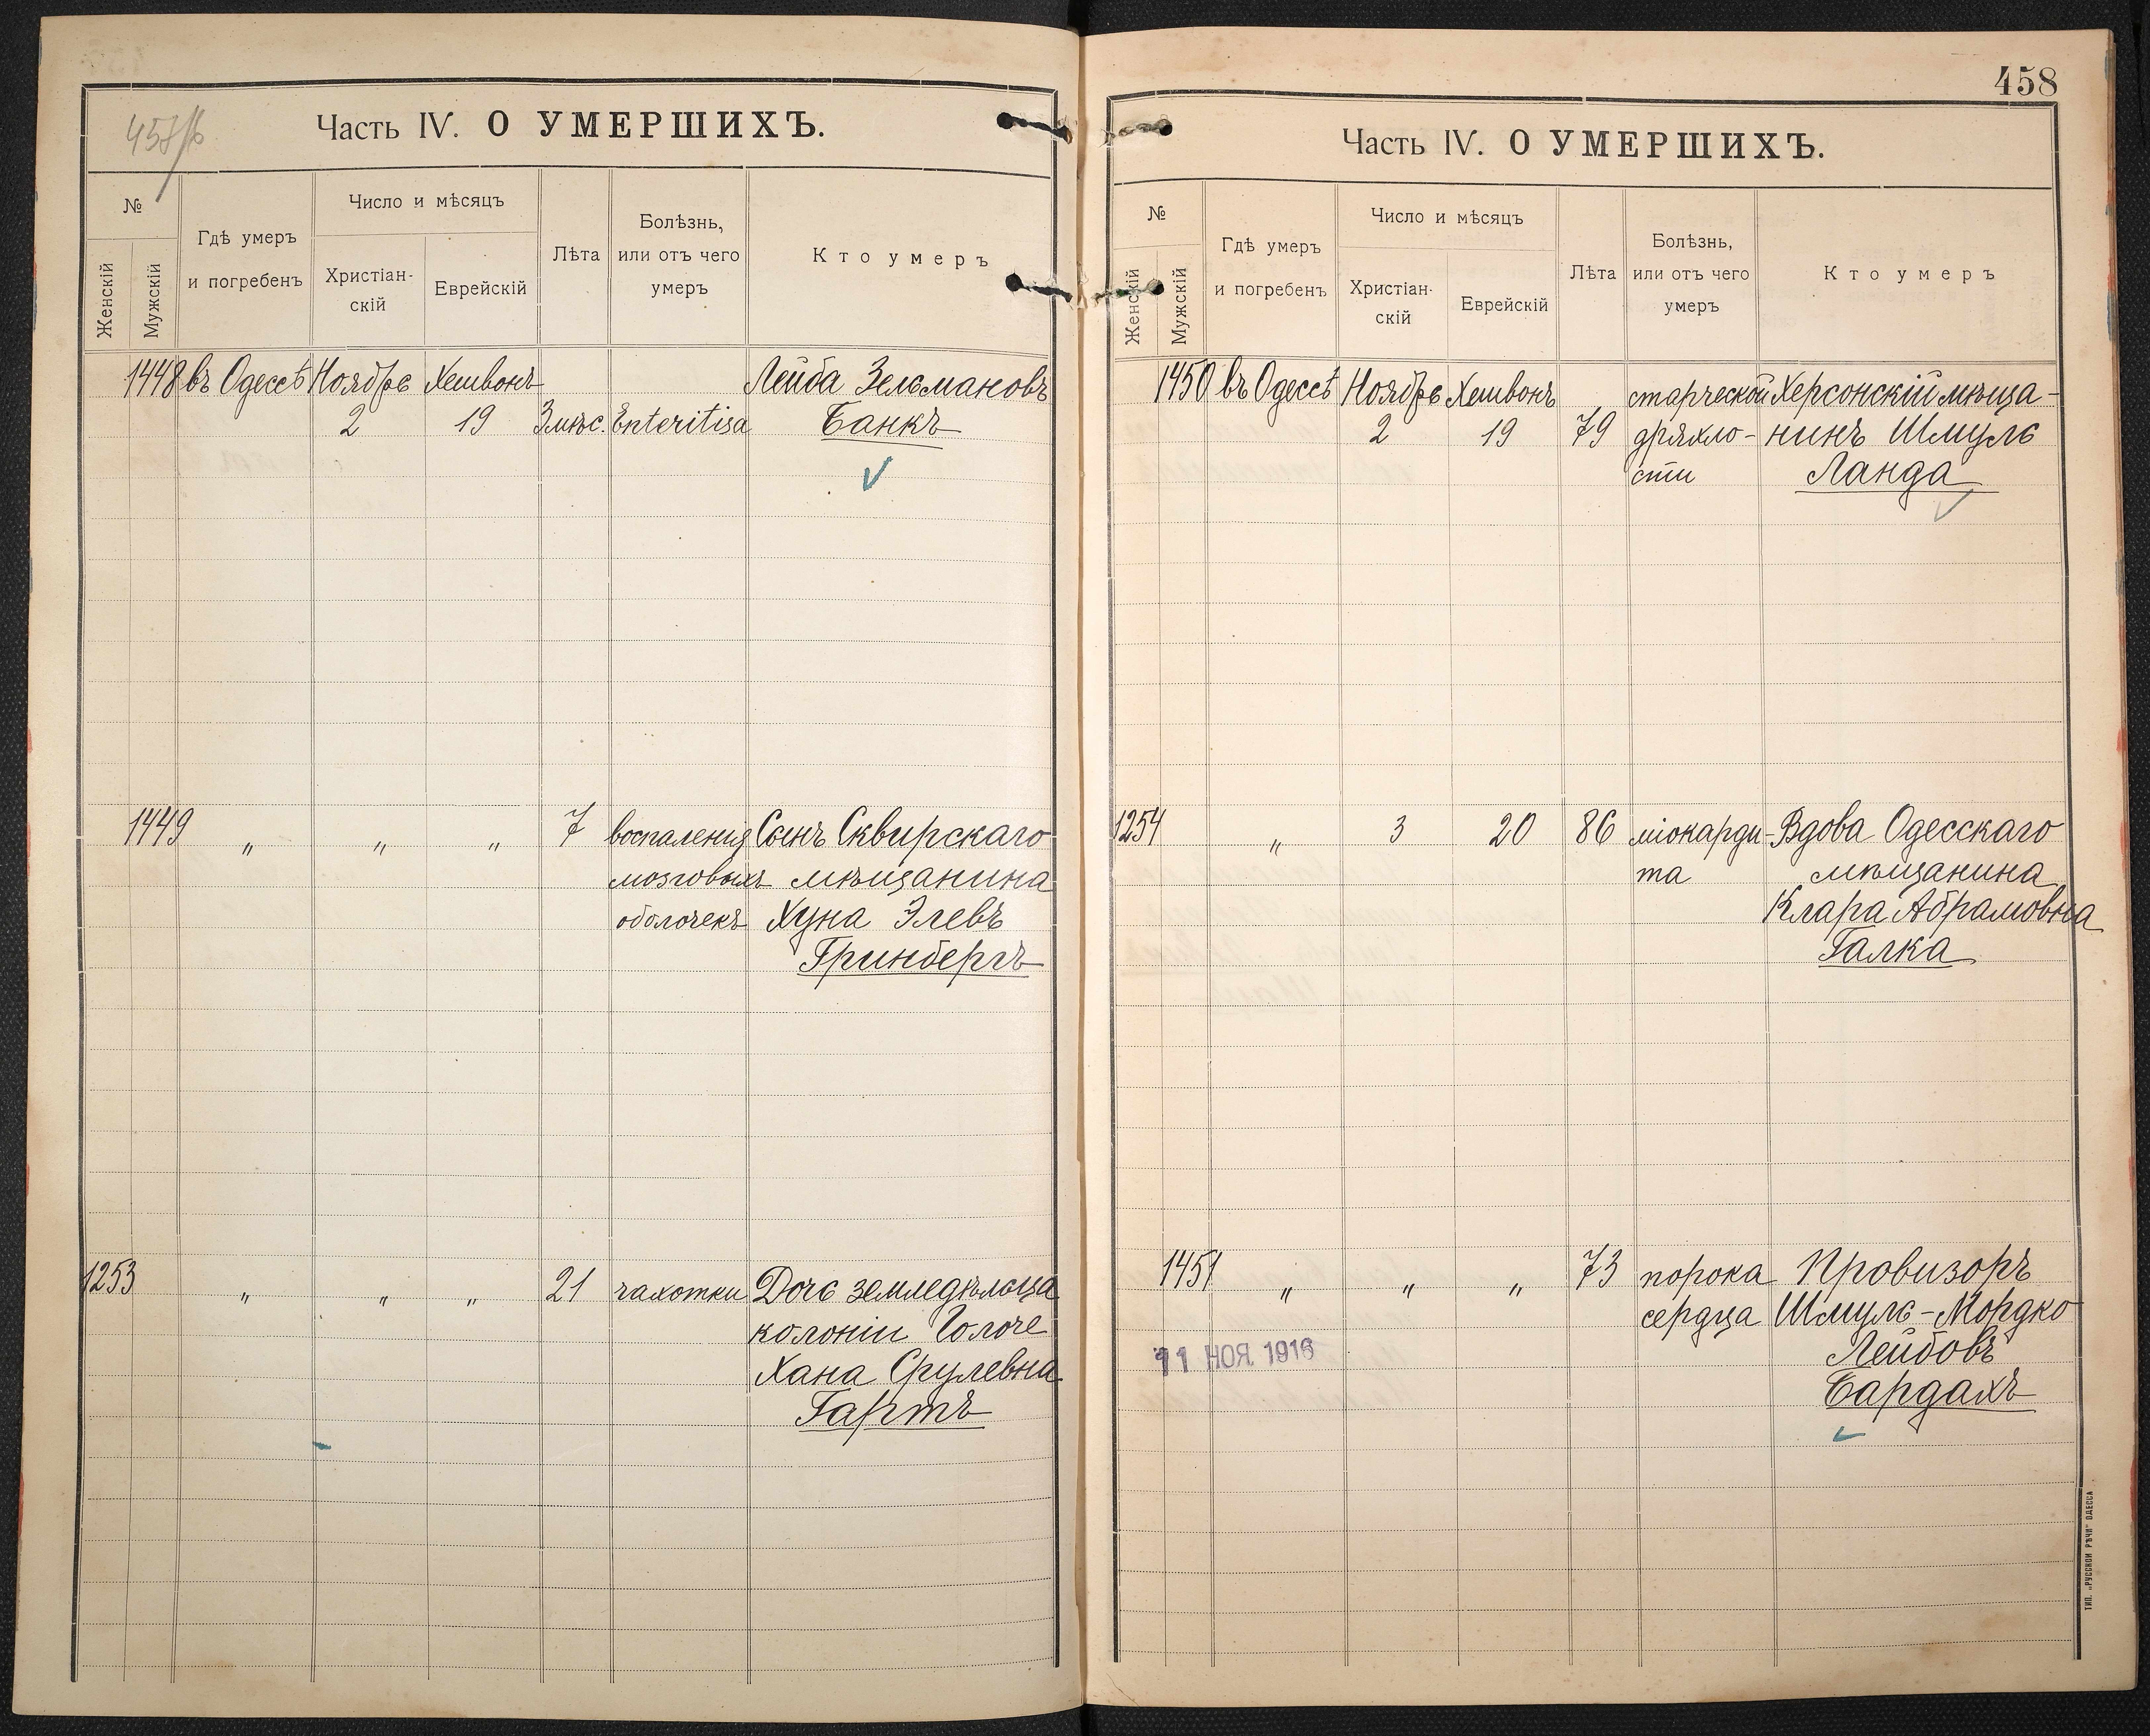 457/б
Часть IV. О УМЕРШИХЪ.
№
Женскій
Мужскій
Гдѣ умеръ
и погребенъ
Число и мѣсяцъ
Христіан-
скій
Еврейскій
Лѣта
Болѣзнь,
или отъ чего
умеръ
Кто умеръ
1448 въ Одессѣ Ноябрь Хешвонъ Лейба Зельмановъ
2 19 3 мѣс. Enteritisa Банкъ
1449 „ „ „ 7 воспаленія Сынъ Сквирскаго
мозговыхъ мѣщанина
оболочекъ Хуна Элевъ
Гринбергъ
1253 „ „ „ 21 чахотки Дочь земледѣльца
колоніи
Хана Срулевна
Гартъ
458
Часть IV. О УМЕРШИХЪ.
№
Женскій
Мужскій
Гдѣ умеръ
и погребенъ
Число и мѣсяцъ
Христіан-
скій
Еврейскій
Лѣта
Болѣзнь,
или отъ чего
умеръ
Кто умеръ
1450 въ Одессѣ Ноябрь Хешвонъ старческой Херсонскій мѣща-
2 19 79 дряхло- нинъ Шмуль
сти Ланда
1254 „ 3 20 86 міокарди- Вдова Одесскаго
та мѣщанина
Клара Абрамовна
Галка
1451 „ „ „ 73 порока Провизоръ
сердца Шмуль-Мордко
11 НОЯ 1916 Лейбовъ
Бардахъ
ТИП. „РУССКОЙ РѢЧИ" ОДЕССА